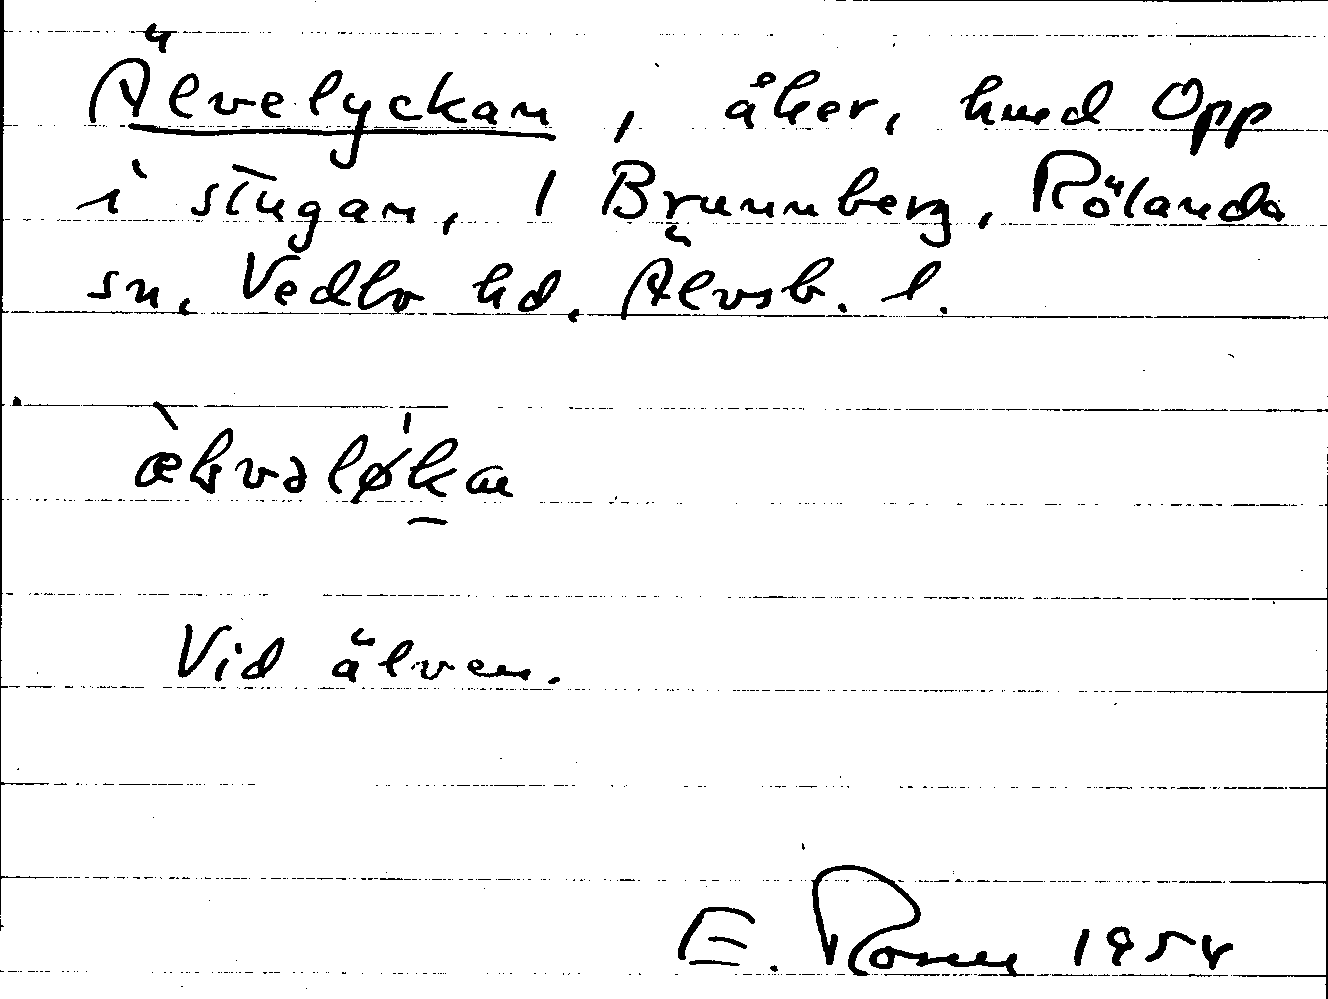 Älvelyckan, åker, hmd Opp
i stugan, 1 Brunnberg, Rölanda
sn. Vedbo hd. Älvsb. l.
Vid älven.
E. Rosen 1954